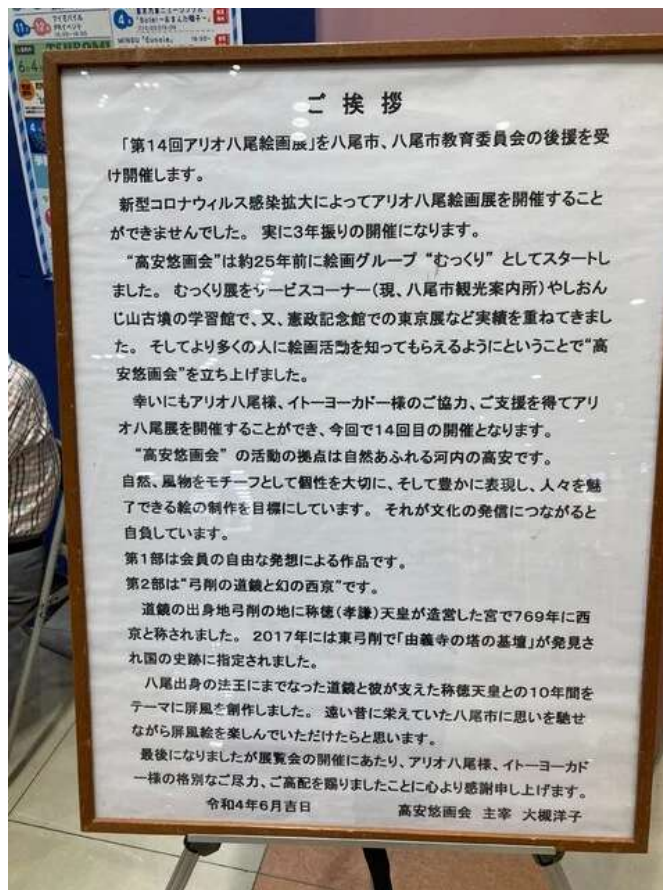 ご挨拶
「第14回アリオ八尾絵画展」を八尾市、八尾市教育委員会の後援を受
け開催します。
新型コロナウィルス感染拡大によってアリオ八尾絵画展を開催すること
ができませんでした。 実に3年振りの開催になります。
“高安悠画会”は約25年前に絵画グループ “むっくり” としてスタートし
ました。 むっくり展をサービスコーナー(現、八尾市観光案内所)やしおん
じ山古墳の学習館で、又、憲政記念館での東京展など実績を重ねてきまし
た。 そしてより多くの人に絵画活動を知ってもらえるようにということで“高
安悠画会”を立ち上げました。
幸いにもアリオ八尾様、イトーヨーカドー様のご協力、ご支援を得てアリ
オ八尾展を開催することができ、今回で14回目の開催となります。
“高安悠画会” の活動の拠点は自然あふれる河内の高安です。
自然、風物をモチーフとして個性を大切に、そして豊かに表現し、人々を魅
了できる絵の制作を目標にしています。 それが文化の発信につながると
自負しています。
第1部は会員の自由な発想による作品です。
第2部は“弓削の道鏡と幻の西京”です。
道鏡の出身地弓削の地に称徳(孝謙)天皇が造営した宮で769年に西
京と称されました。 2017年には東弓削で「由義寺の塔の基壇」が発見さ
れ国の史跡に指定されました。
八尾出身の法王にまでなった道鏡と彼が支えた称徳天皇との10年間を
テーマに屏風を創作しました。 遠い昔に栄えていた八尾市に思いを馳せ
ながら屏風絵を楽しんでいただけたらと思います。
最後になりましたが展覧会の開催にあたり、アリオ八尾様、イトーヨーカド
ー様の格別なご尽力、ご高配を賜りましたことに心より感謝申し上げます。
令和4年6月吉日 高安悠画会 主宰 大槻洋子